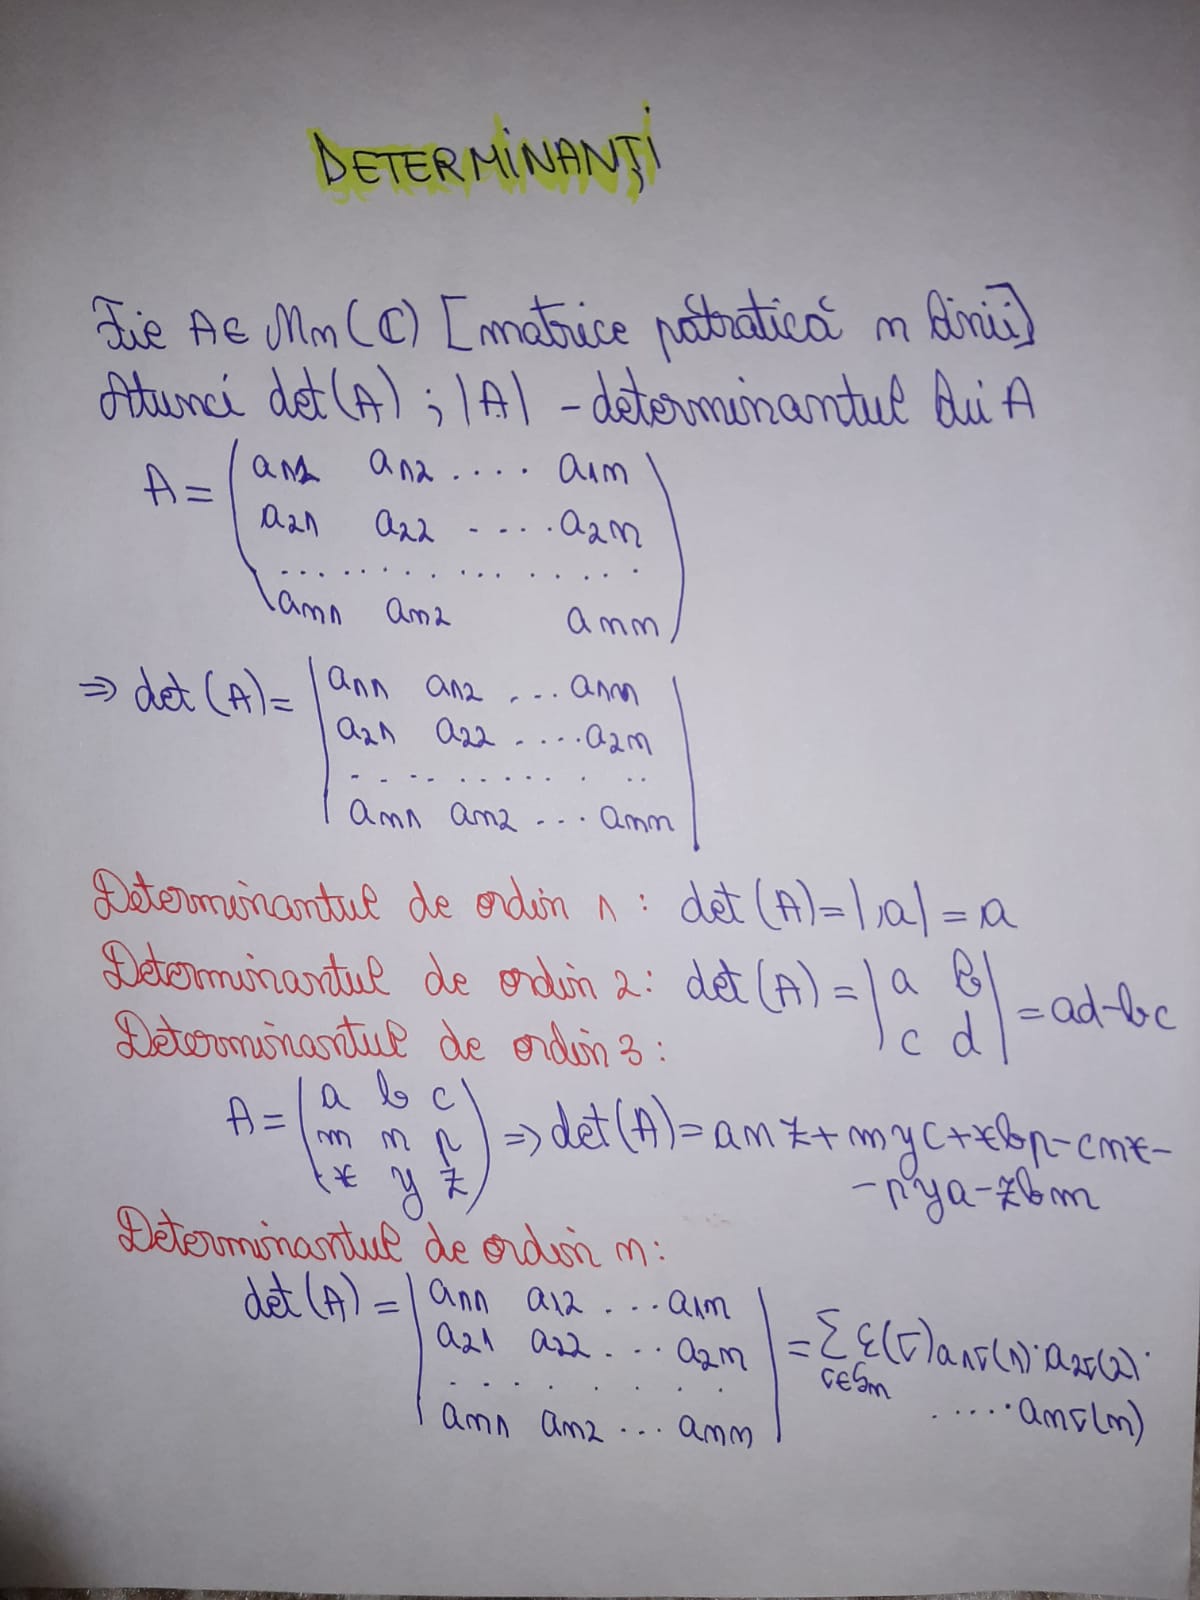 DETERMINANȚI
Fie A∈ Mn(ℂ) [matrice pătratică n linii]
Atunci det(A) ; |A| - determinantul lui A
A = ( a11 a12 .... a1n
a21 a22 .... a2n
................
an1 an2 ann )
⇒ det(A) = | a11 a12 ... a1n
a21 a22 .... a2n
................
an1 an2 ... ann |
Determinantul de ordin 1 : det(A) = |a| = a
Determinantul de ordin 2: det(A) = | a b
c d | = ad-bc
Determinantul de ordin 3 :
A = ( a b c
m n p
x y z ) ⇒ det(A) = anz + myc + xbp - cnx -
- pya - zbm
Determinantul de ordin n:
det(A) = | a11 a12 ... a1n
a21 a22 ... a2n
................
an1 an2 ... ann | = Σ ε(σ) a1σ(1) · a2σ(2) ·
σ∈Sn
..... anσ(n)